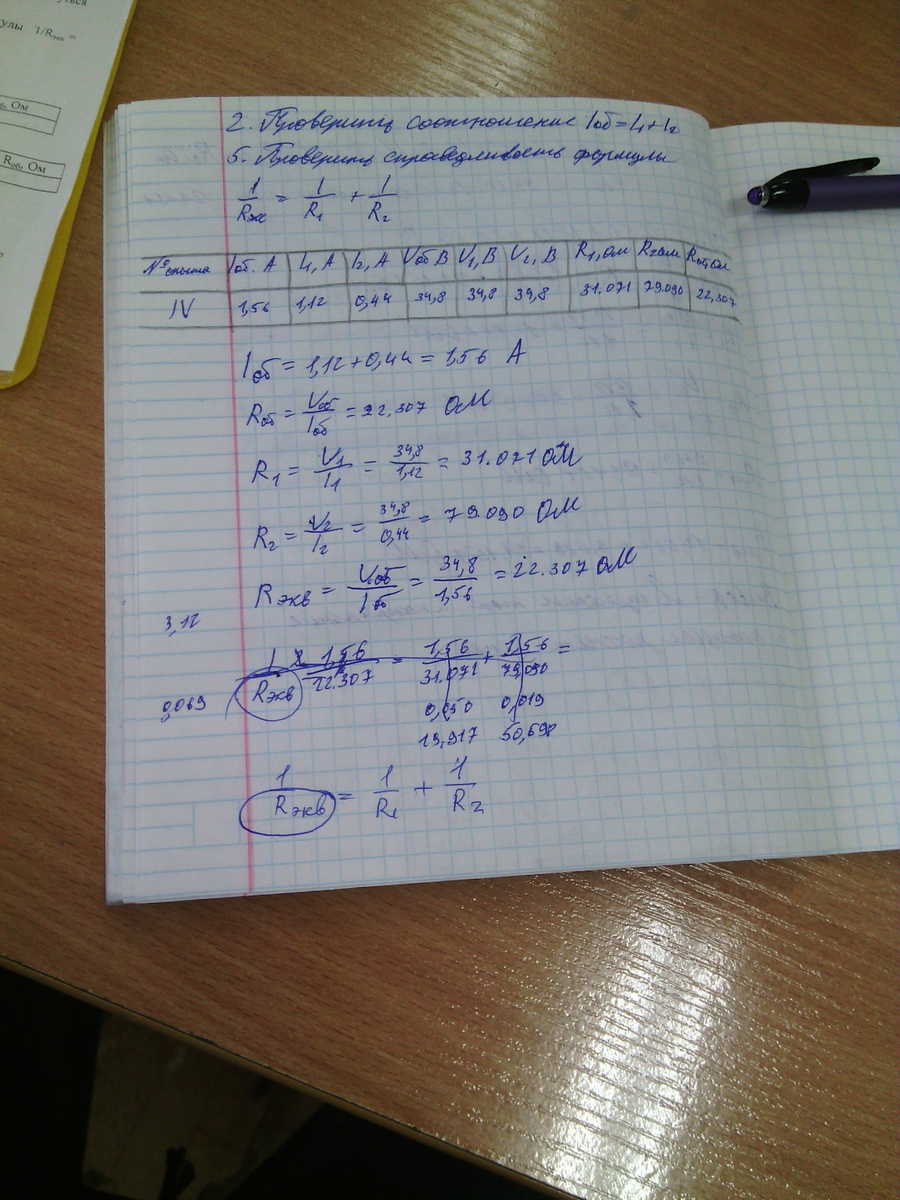 улы 1/Rэкв =
Ом
Rоб, Ом
2. Проверить соотношение Iоб = I₁ + I₂
5. Проверить справедливость формулы
1/Rэк = 1/R₁ + 1/R₂
№ опыта Iоб. А I₁, А I₂, А Uоб В U₁, В U₂, В R₁, Ом R₂ Ом Rоб, Ом
IV 1,56 1,12 0,44 34,8 34,8 34,8 31.071 79.090 22,307
Iоб = 1,12 + 0,44 = 1,56 А
Rоб = Uоб/Iоб = 22.307 ОМ
R₁ = U₁/I₁ = 34,8/1,12 = 31.071 ОМ
R₂ = U₂/I₂ = 34,8/0,44 = 79.090 ОМ
Rэкв = Uоб/Iоб = 34,8/1,56 = 22.307 ОМ
3,12
1/Rэкв 1,56/22.307 = 1,56/31.071 + 1,56/79.090 =
0,069 0,050 0,019
19,917 50,698
1/Rэкв = 1/R₁ + 1/R₂